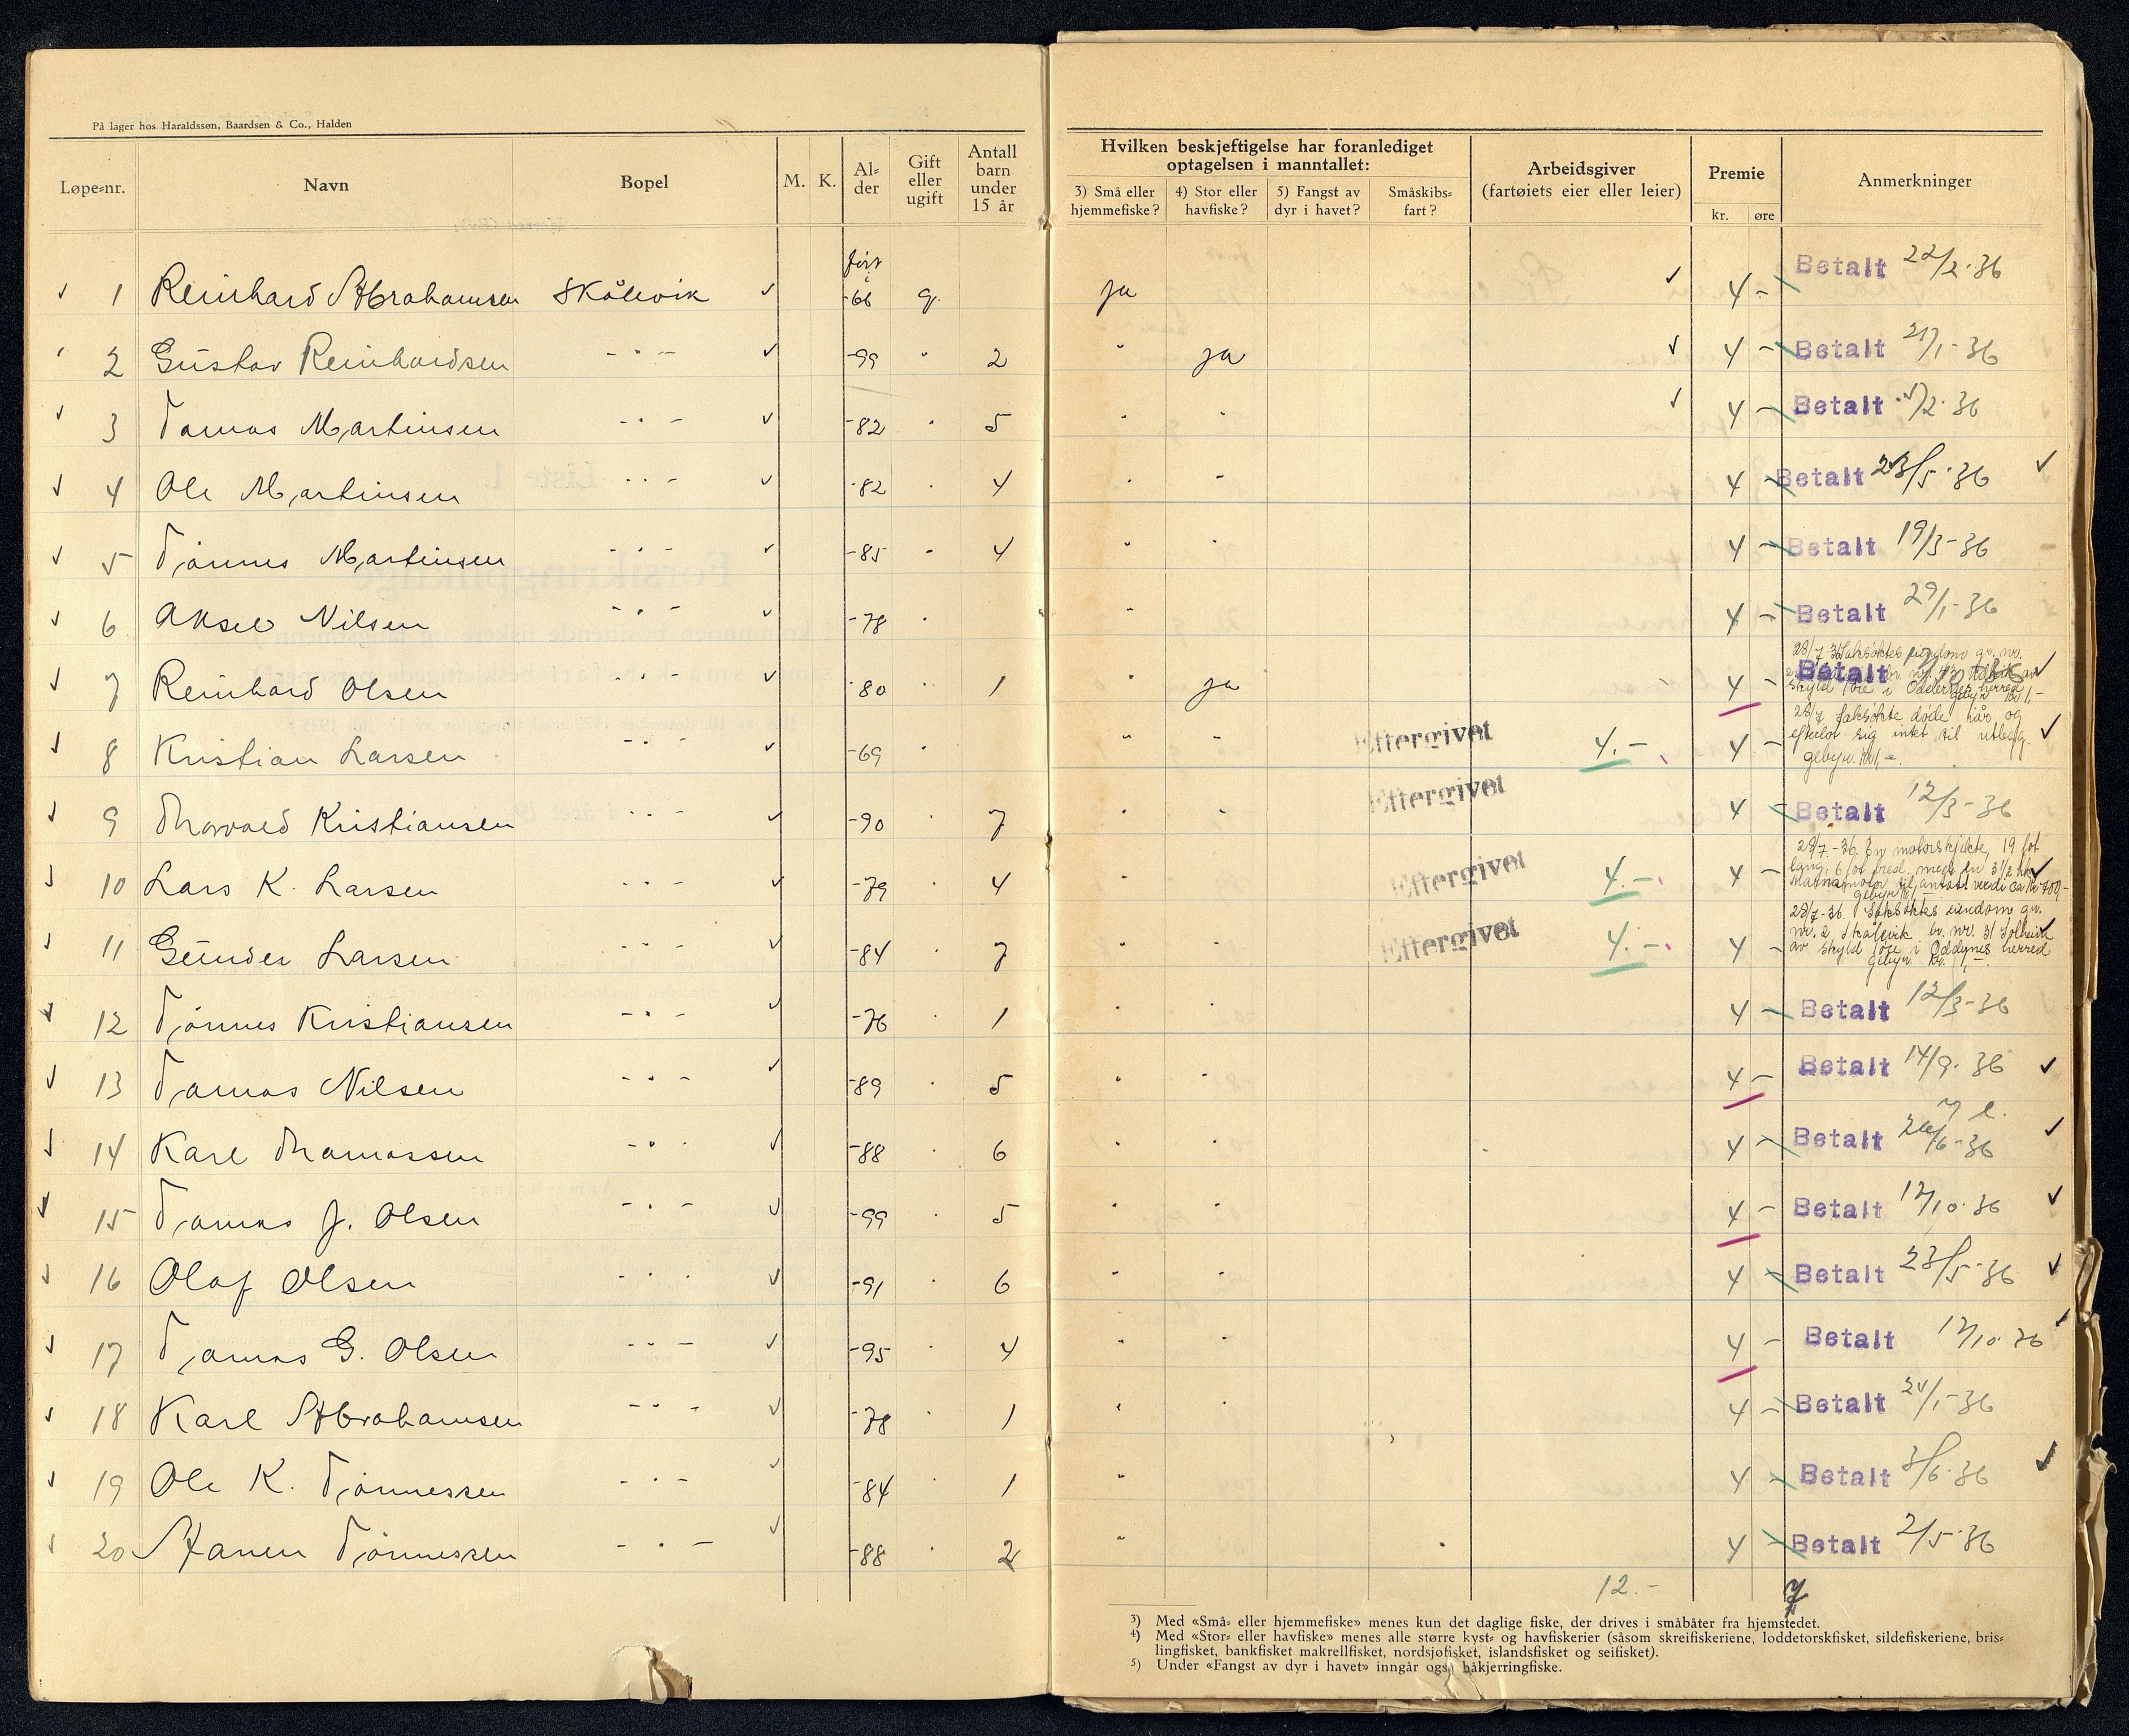 På lager hos Haraldssøn, Baardsen & Co., Halden
Løpe-nr. Navn Bopel M. K. Al-der Gift eller ugift Antall barn under 15 år
Hvilken beskjeftigelse har foranlediget optagelsen i manntallet:
3) Små eller hjemmefiske? 4) Stor eller havfiske? 5) Fangst av dyr i havet? Småskibs-fart?
Arbeidsgiver (fartøiets eier eller leier) Premie kr. øre Anmerkninger
1 Reinhard Abrahamsen Skålevik -66 g. ja 4 - Betalt 22/2-36
2 Gustav Reinhardsen - " - -99 " 2 " ja 4 - Betalt 36
3 Tomas Martinsen - " - -82 " 5 " " 4 - Betalt /2-36
4 Ole Martinsen - " - -82 " 4 " " 4 - Betalt 23/5-36
5 Tønnes Martinsen - " - -85 " 4 " " 4 - Betalt 19/3-36
6 Aksel Nilsen - " - -78 " " 4 - Betalt 29/1-36
7 Reinhard Olsen - " - -80 " 1 " ja 4 - Betalt
28/7-36 Saksøktes eiendom gr. nr.
8 Kristian Larsen - " - -69 " " " Eftergivet 4.- 4 - 28/7 Saksøkte døde iår og
efterlot sig intet til utlegg.
gebyr. kr 1,-.
9 Thorvald Kristiansen - " - -90 " 7 " " Eftergivet 4 - Betalt 12/3-36
10 Lars K. Larsen - " - -79 " 4 " " Eftergivet 4.- 4 - 28/7-36. En motorskjekte, 19 fot
lang, 6 fot bred, med en 3 1/2 hk
11 Gunder Larsen - " - -84 " 7 " " Eftergivet 4.- 4 - 28/7-36. Saksøktes eiendom gr.
nr. 2 Skålevik br. nr. 31 Solheim
av skyld føre i Oddernes herred
gebyr. kr. 1,-.
12 Tønnes Kristiansen - " - -76 " 1 " " 4 - Betalt 12/3-36
13 Tomas Nilsen - " - -89 " 5 " " 4 - Betalt 14/9-36
14 Karl Thomassen - " - -88 " 6 " " 4 - Betalt 26/6-36
15 Tomas J. Olsen - " - -99 " 5 " " 4 - Betalt 12/10-36
16 Olaf Olsen - " - -91 " 6 " " 4 - Betalt 23/5-36
17 Tomas G. Olsen - " - -95 " 4 " " 4 - Betalt 12/10-36
18 Karl Abrahamsen - " - -78 " 1 " " 4 - Betalt 24/1-36
19 Ole K. Tønnessen - " - -84 " 1 " 4 - Betalt 3/6-36
20 Tønnessen - " - -88 " 2 " 4 - Betalt 2/5-36
12.- 7
3) Med «Små- eller hjemmefiske» menes kun det daglige fiske, der drives i småbåter fra hjemstedet.
4) Med «Stor- eller havfiske» menes alle større kyst- og havfiskerier (såsom skreifiskeriene, loddetorskfisket, sildefiskeriene, bris-
lingfisket, bankfisket makrellfisket, nordsjøfisket, islandsfisket og seifisket).
5) Under «Fangst av dyr i havet» inngår også håkjerringfiske.